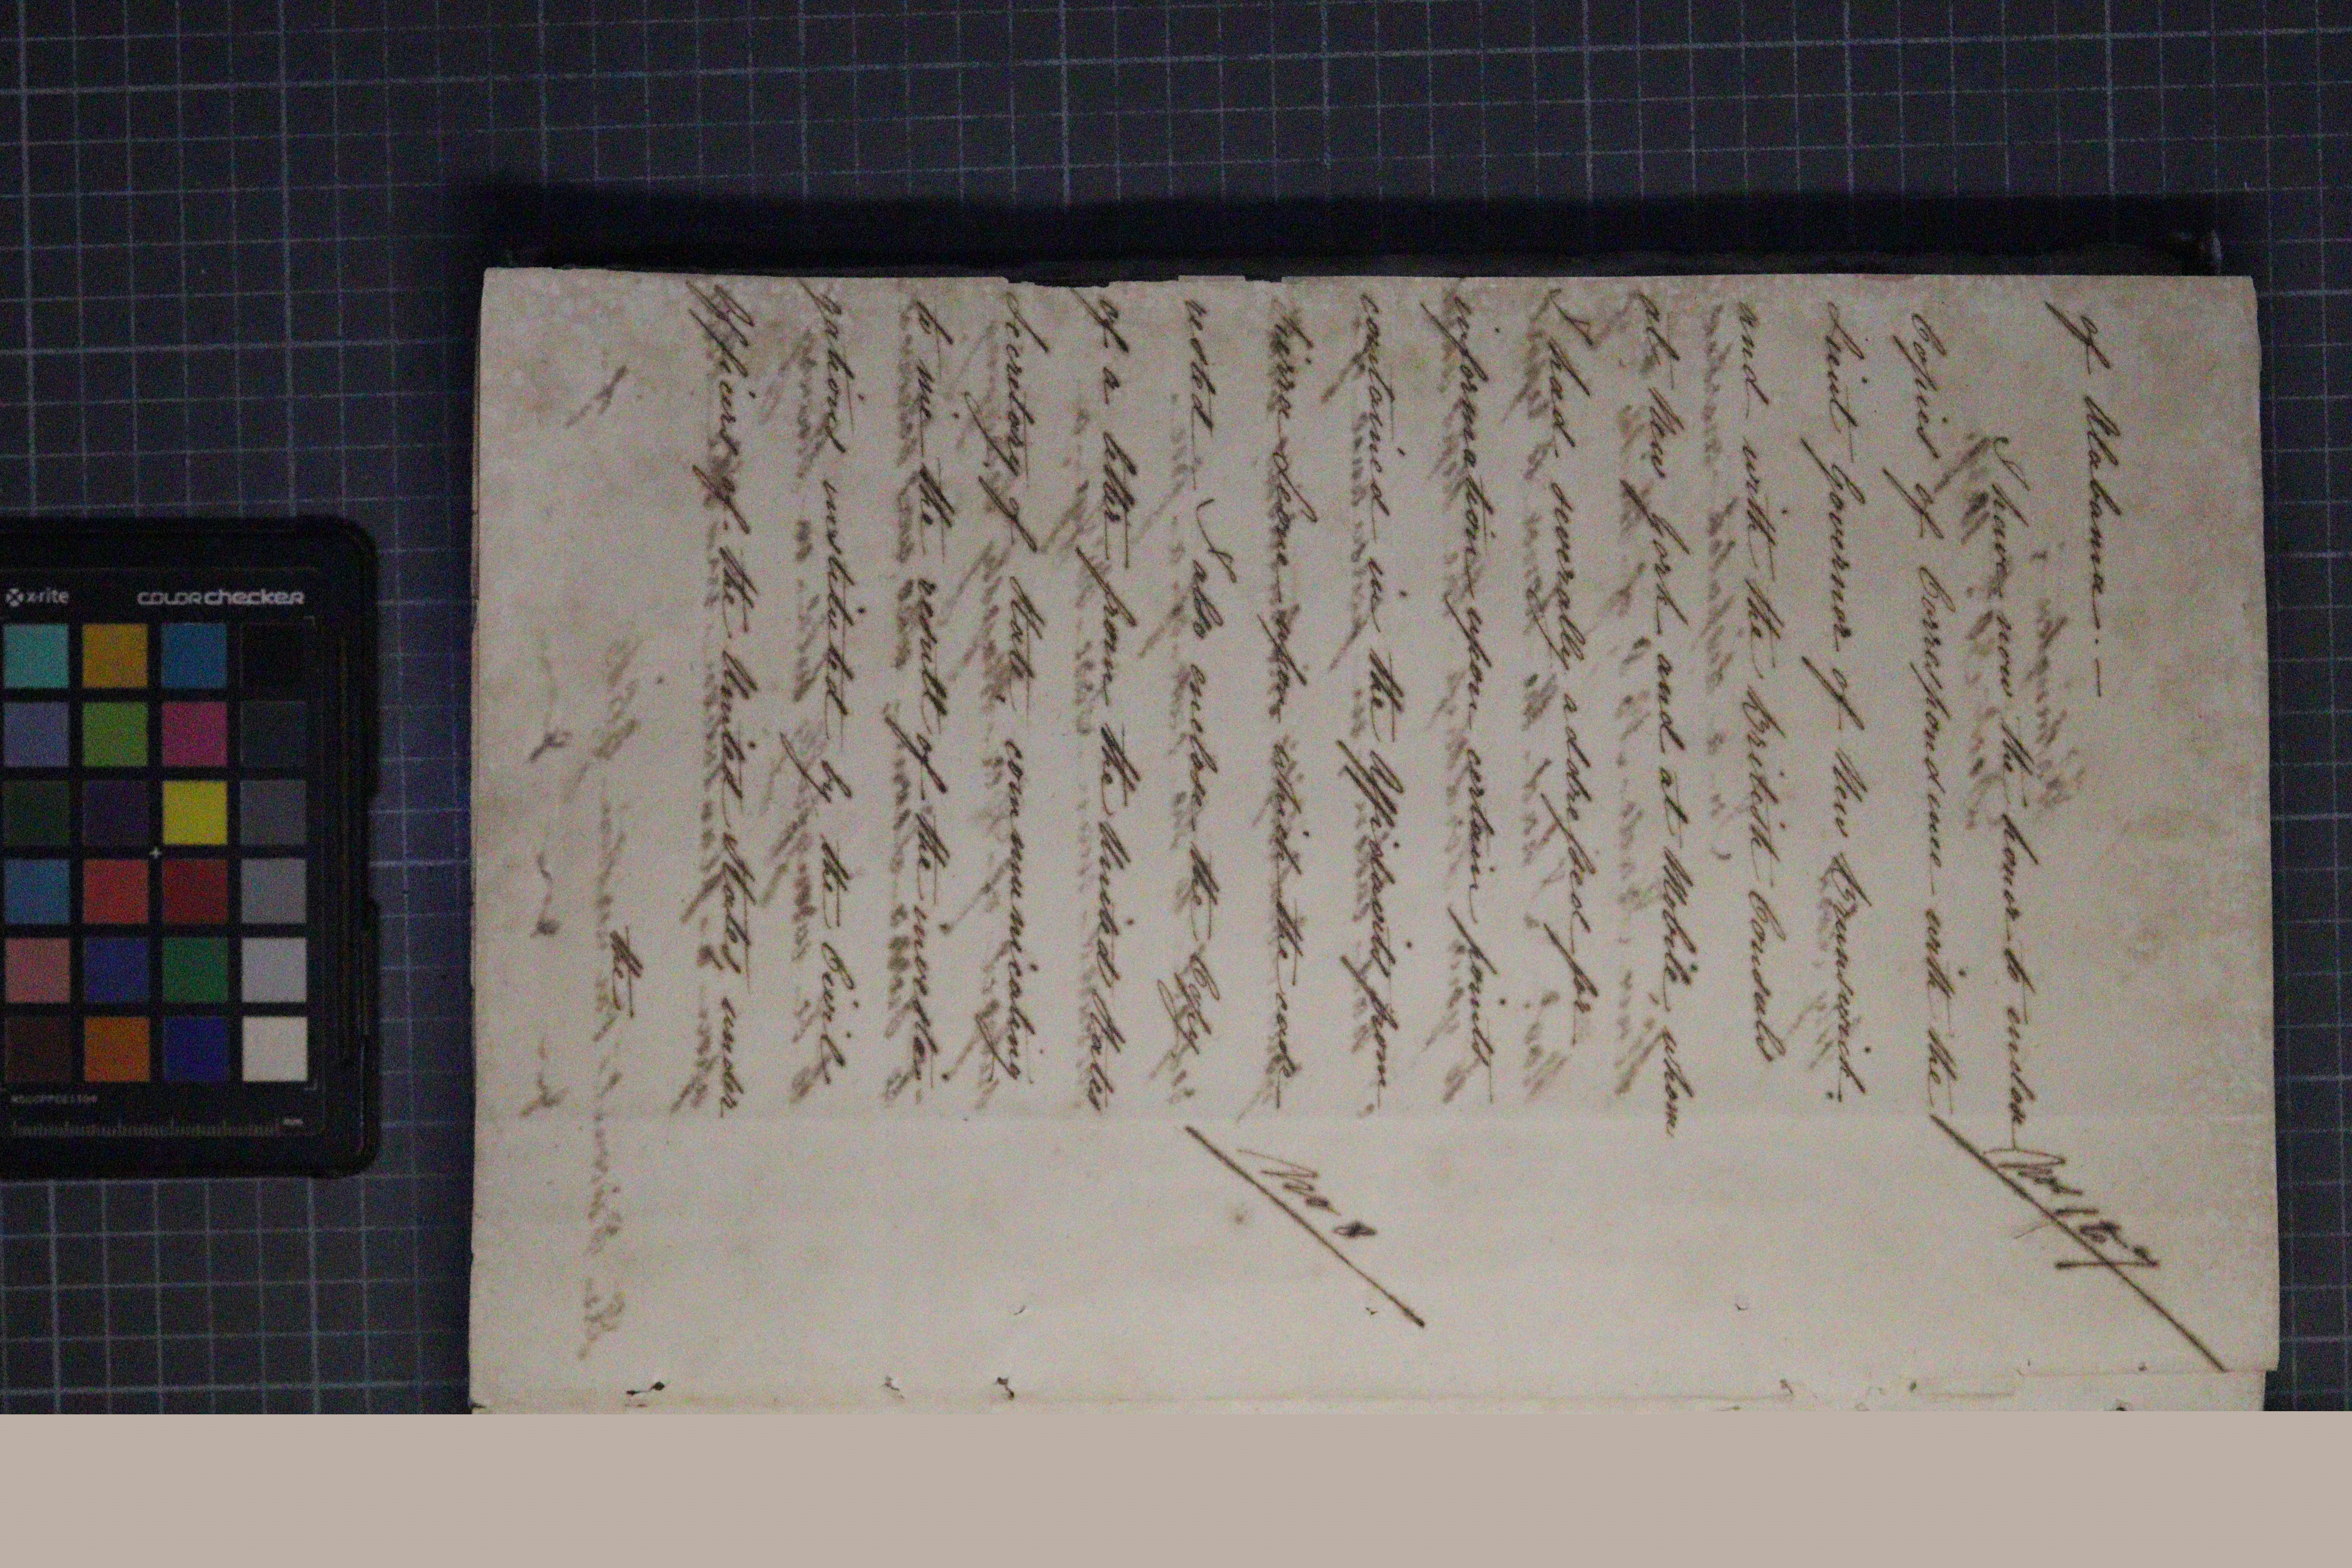 of Alabama. —
I have now the honor to inclose
Nos 1 to 7
Copies of Correspondence with the
Lieut Governor of New Brunswick.
and with the British Consuls
at New York and at Mobile, whom
I had severally addressed for
information upon certain points
contained in the Affidavits from
upon which the case
rested. I also enclose the Copy
No 8
of a letter from the United States
Secretary of State, communicating
to me the result of the investi-
gations instituted by the Civil
Officers of the United States, under
the
x-rite
colorchecker
mm